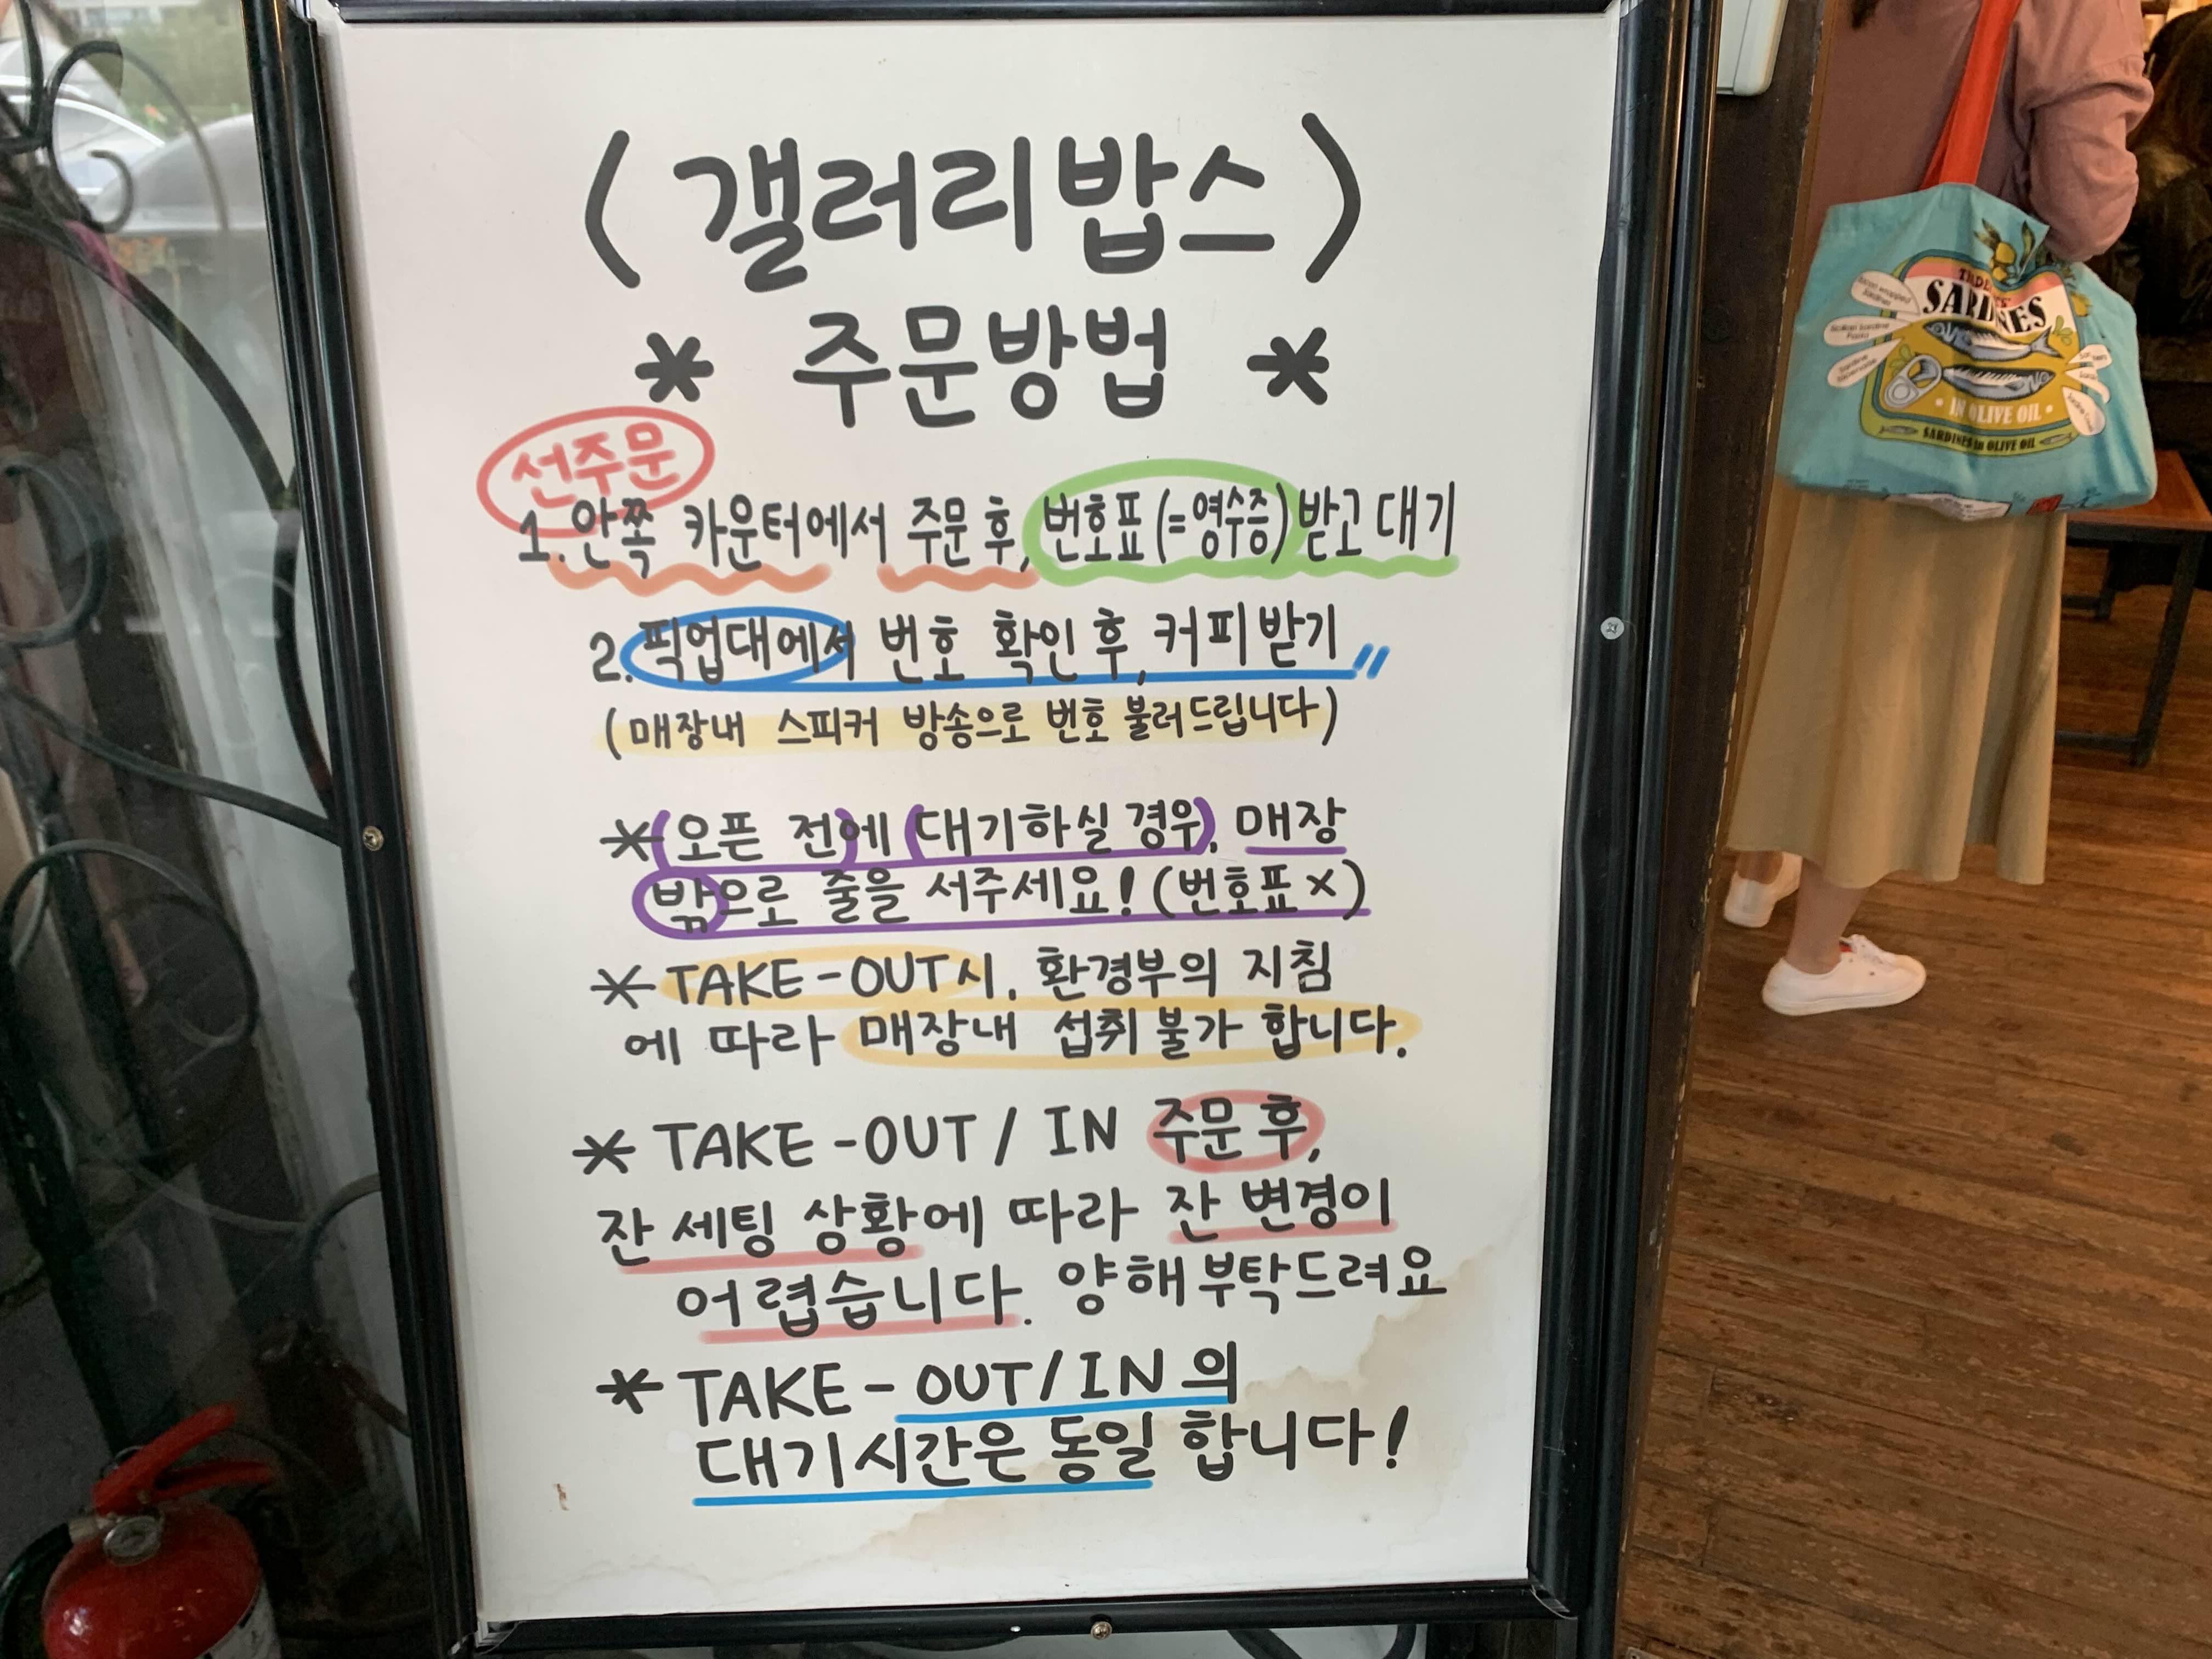 <갤러리밥스>
* 주문방법 *
선주문
1. 안쪽 카운터에서 주문 후, 번호표(=영수증) 받고 대기
2. 픽업대에서 번호 확인 후, 커피 받기 "
(매장내 스피커 방송으로 번호 불러드립니다)
* (오픈 전)에 (대기하실 경우), 매장
밖으로 줄을 서주세요! (번호표 x)
* TAKE-OUT시, 환경부의 지침
에 따라 매장내 섭취 불가 합니다.
* TAKE-OUT / IN 주문 후,
잔 세팅 상황에 따라 잔 변경이
어렵습니다. 양해부탁드려요
* TAKE-OUT/IN 의
대기시간은 동일 합니다!
SARDINES
• IN OLIVE OIL •
SARDINES in OLIVE OIL